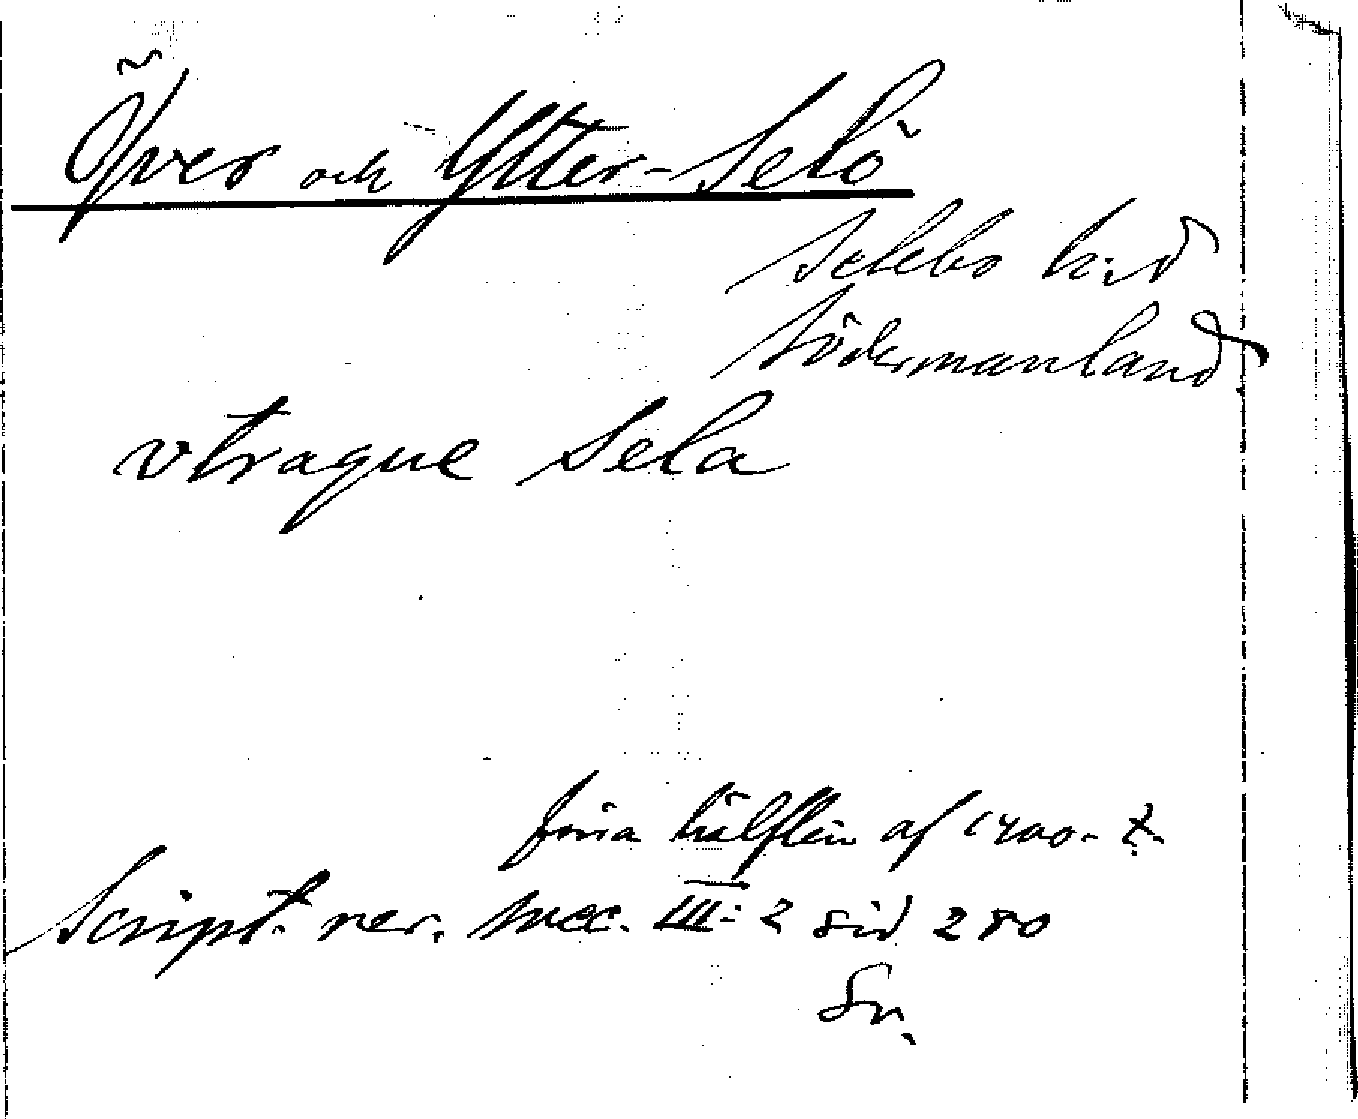 Öfver och Ytter-Selö
Selebo h:d
Södermanland
vtraque Sela
förra hälften af 1400-t.
Script. rer. svec. III: 2 sid 280
Sn.